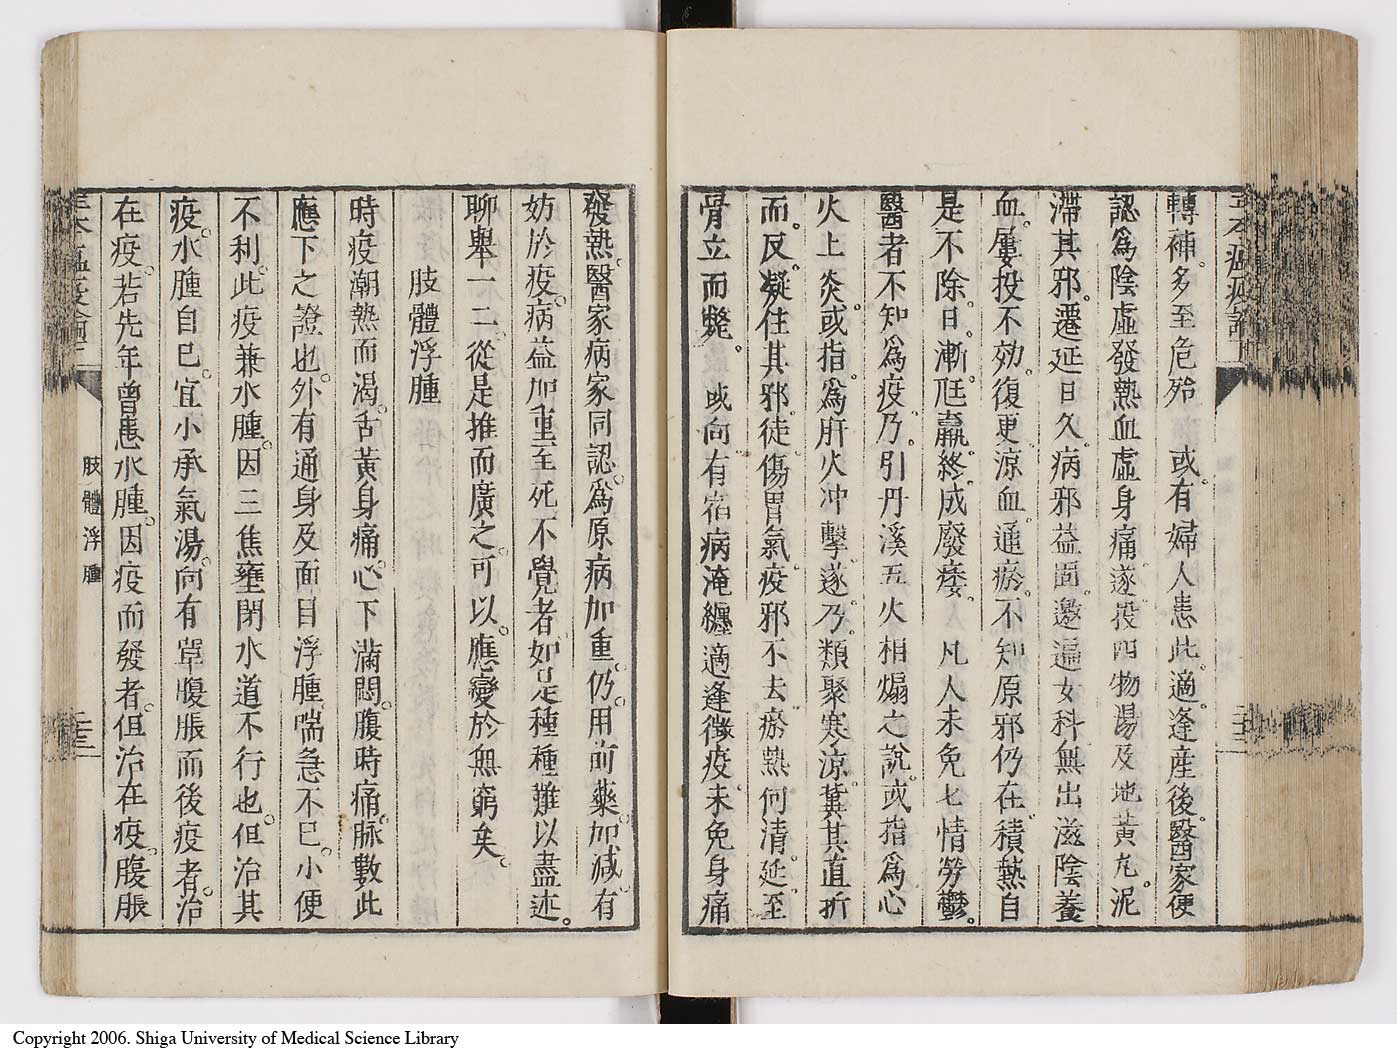 轉補。多至危殆　或有婦人患此。適逢産後。醫家便
認爲陰虛發熱血虛身痛。遂投四物湯及地黃丸。泥
滯其邪。遷延日久。病邪益固。邀遍女科。無出滋陰養
血。屢投不効。復更涼血。通瘀。不知原邪仍在。積熱自
是不除。日漸尫羸。終成廢痿。　凡人未免七情勞鬱。
醫者不知爲疫。乃引丹溪五火相煽之說。或指爲心
火上炎。或指爲肝火冲擊。遂乃類聚寒涼。冀其直折
而反凝住其邪。徒傷胃氣。疫邪不去。瘀熱何清。延至
骨立而斃。　或向有宿病淹纏。適逢微疫。未免身痛
發熱。醫家病家同認爲原病加重。仍用前藥加減。有
妨於疫。病益加重。至死不覺者。如是種種難以盡述。
聊舉一二。從是推而廣之。可以應變於無窮矣。
肢體浮腫
時疫潮熱而渴。舌黃身痛。心下滿悶。腹時痛。脉數。此
應下之證也。外有通身及面目浮腫。喘急不已。小便
不利。此疫兼水腫。因三焦壅閉。水道不行也。但治其
疫。水腫自已。宜小承氣湯。向有單腹脹而後疫者。治
在疫。若先年曾患水腫。因疫而發者。但治在疫。腹脹
肢體浮腫
二十三
Copyright 2006. Shiga University of Medical Science Library